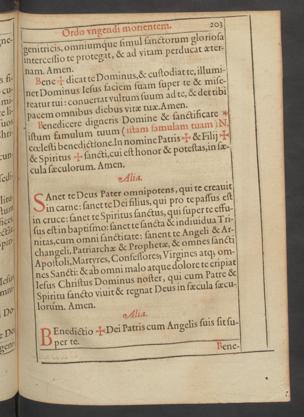 Ordo vngendi morientem. 203
genitricis, omniumque simul sanctorum gloriosa
intercessio te protegat, & ad vitam perducat æter-
nam. Amen.
Bene ✠ dicat te Dominus, & custodiat te, illumi-
net Dominus Iesus faciem suam super te & mise-
reatur tui: conuertat vultum suum ad te, & det tibi
pacem omnibus diebus vitæ tuæ. Amen.
Benedicere digneris Domine & sanctificare *
istum famulum tuum (istam famulam tuam) N.
cœlesti benedictione. In nomine Patris ✠ & Filij ✠
& Spiritus ✠ sancti, cui est honor & potestas, in sæ-
cula sæculorum. Amen.
Alia.
SAnet te Deus Pater omnipotens, qui te creauit
in carne: sanet te Dei filius, qui pro te passus est
in cruce: sanet te Spiritus sanctus, qui super te effu-
sus est in baptismo: sanet te sancta & indiuidua Tri-
nitas, cum omni sanctitate: sanent te Angeli & Ar-
changeli, Patriarchæ & Prophetæ, & omnes sancti
Apostoli, Martyres, Confessores, Virgines atq; om-
nes Sancti: & ab omni malo atque dolore te eripiat
Iesus Christus Dominus noster, qui cum Patre &
Spiritu sancto viuit & regnat Deus in sæcula sæcu-
lorum. Amen.
Alia.
BEnedictio ✠ Dei Patris cum Angelis suis sit su-
per te.
Bene-